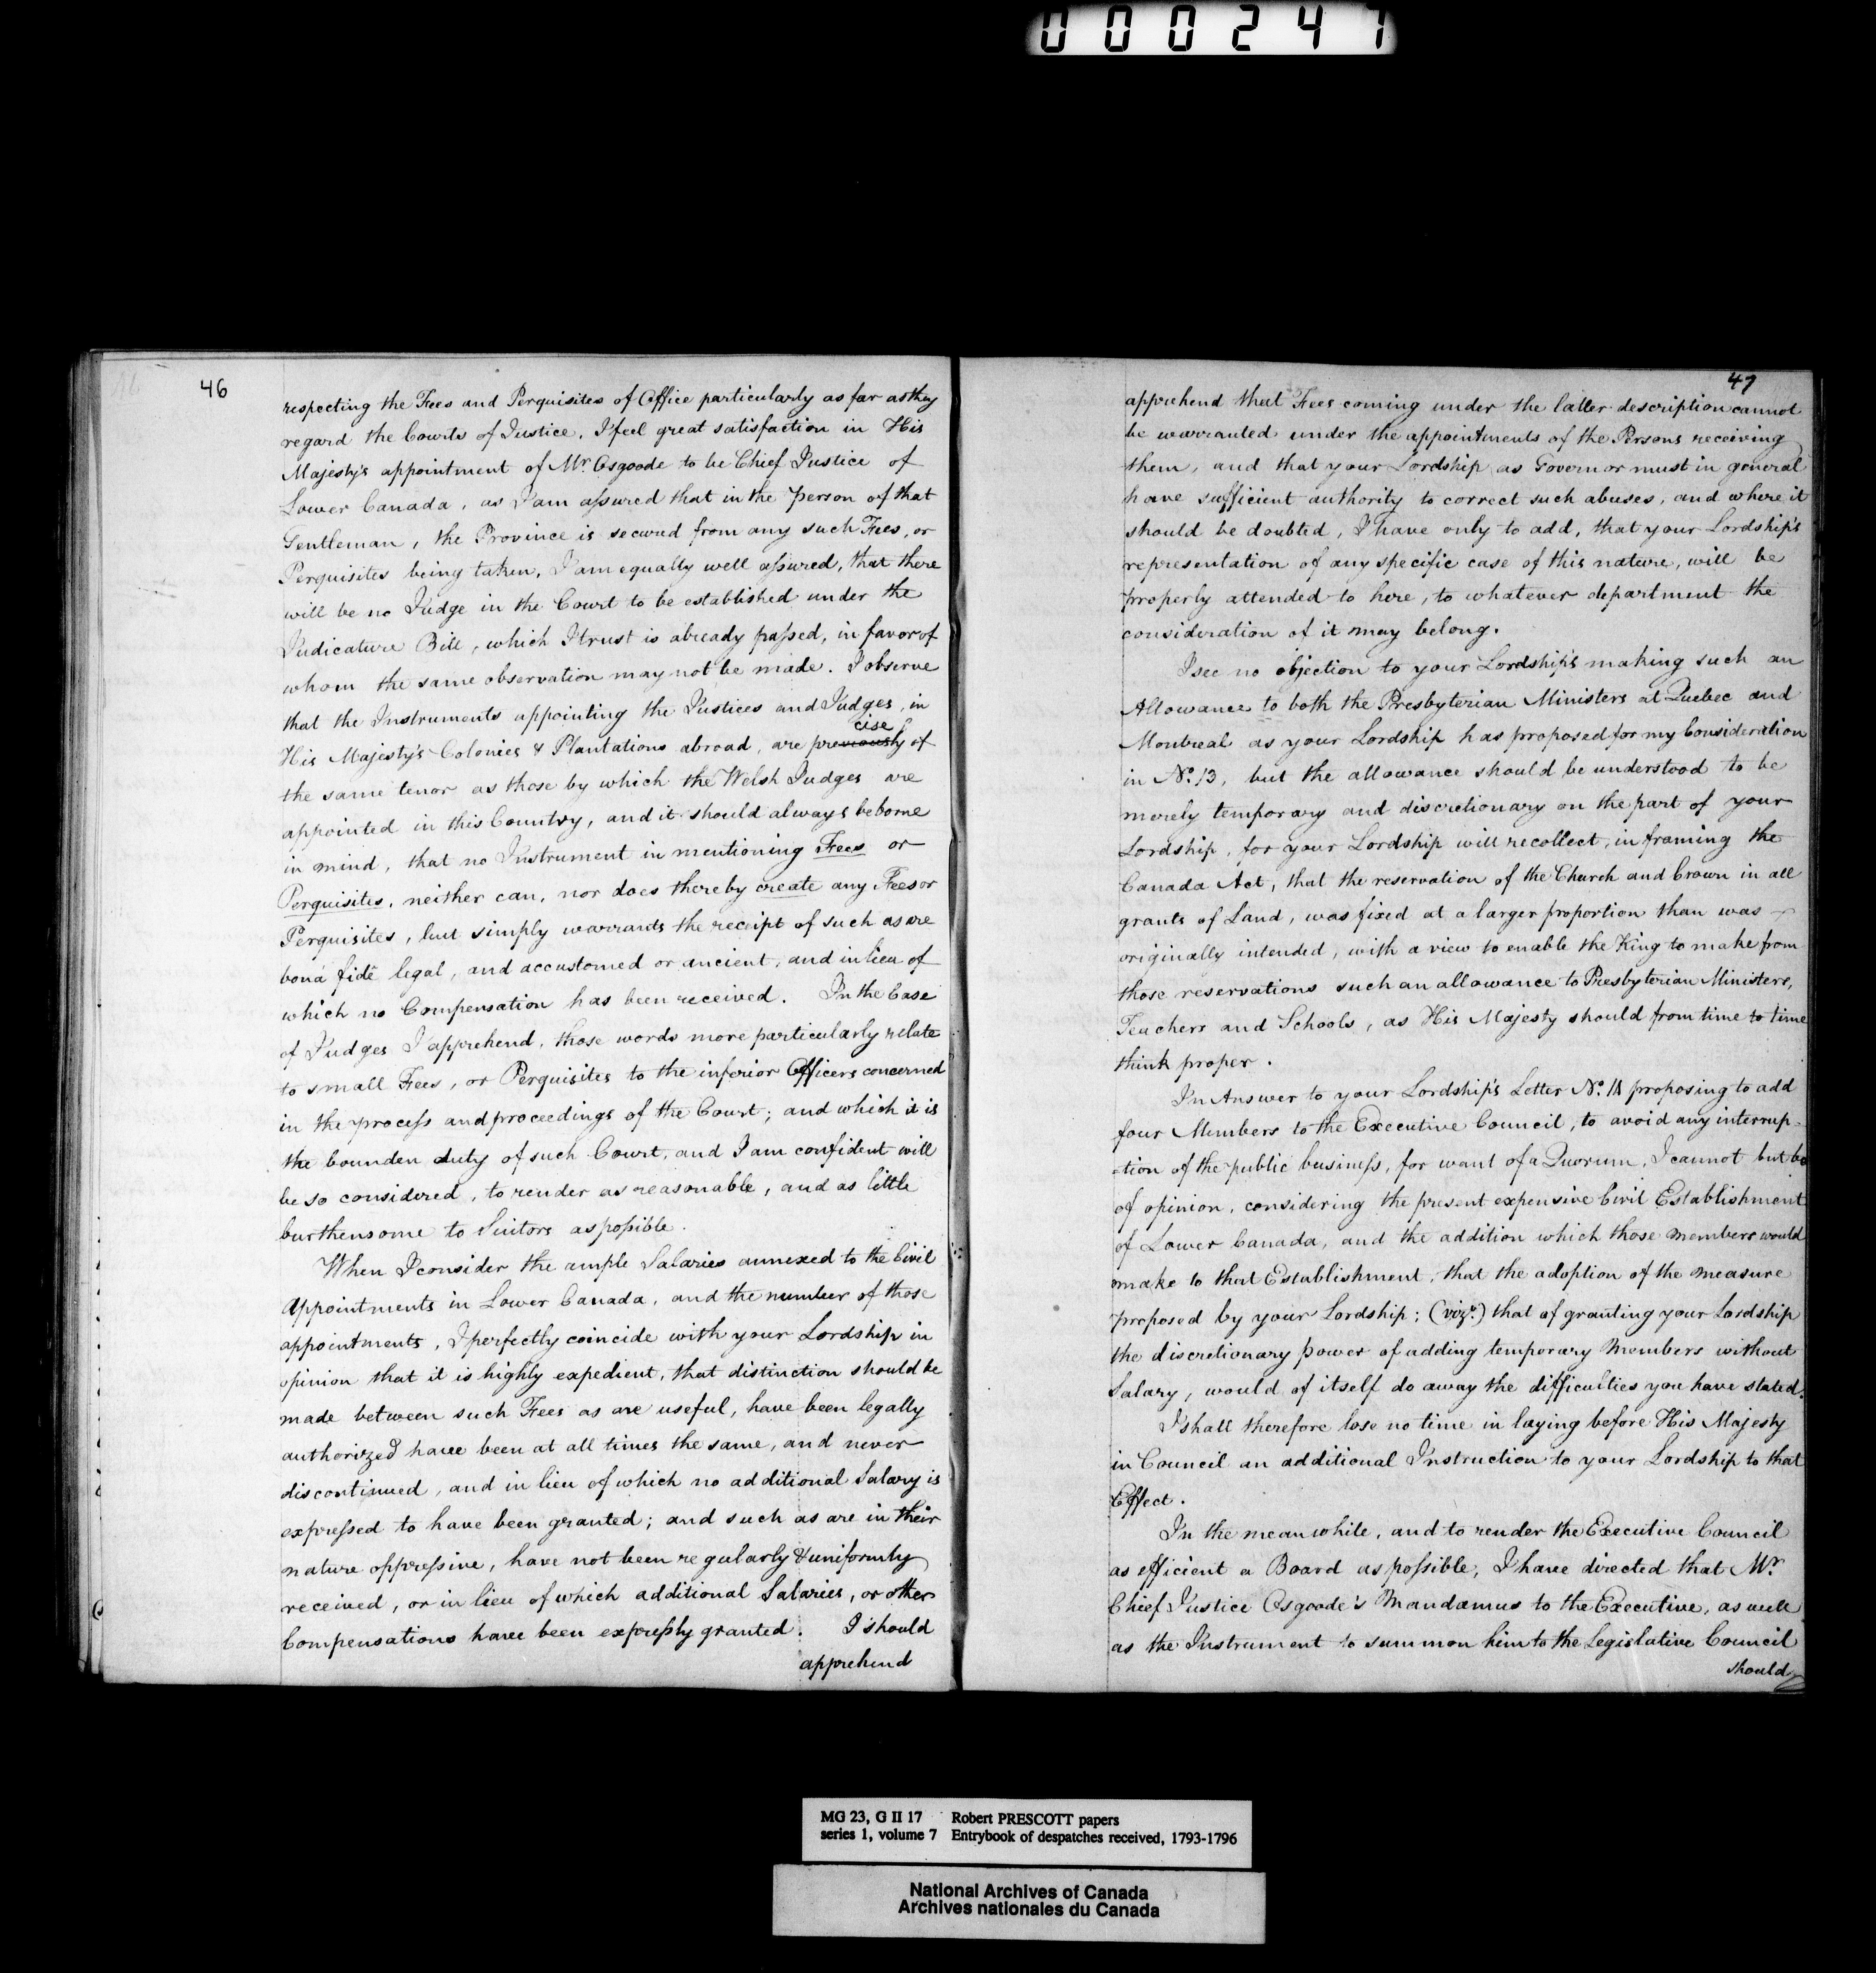 000247
46
respecting the Fees and Perquisites of Office particularly as far as they
regard the Courts of Justice. I feel great satisfaction in His
Majesty's appointment of Mr. Osgoode to be Chief Justice of
Lower Canada, as I am assured that in the Person of that
Gentleman, the Province is secured from any such Fees, or
Perquisites being taken, I am equally well assured, that there
will be no Judge in the Court to be established under the
Judicature Bill, which I trust is already passed, in favor of
whom the same observation may not be made. I observe
that the Instruments appointing the Justices and Judges, in
cise
His Majesty's Colonies & Plantations abroad, are previously of
the same tenor as those by which the Welsh Judges are
appointed in this Country, and it should always be borne
in mind, that no Instrument in mentioning Fees or
Perquisites, neither can, nor does thereby create any Fees or
Perquisites, but simply warrants the receipt of such as are
bonâ fidê legal, and accustomed or ancient, and in lieu of
which no Compensation has been received. In the Case
of Judges I apprehend, those words more particularly relate
to small Fees, or Perquisites to the inferior Officers concerned
in the process and proceedings of the Court; and which it is
the bounden duty of such Court, and I am confident will
be so considered, to render as reasonable, and as little
burthensome to Suitors as possible.
When I consider the ample Salaries annexed to the Civil
Appointments in Lower Canada, and the number of those
appointments, I perfectly coincide with your Lordship in
opinion that it is highly expedient, that distinction should be
made between such Fees as are useful, have been legally
authorized have been at all times the same, and never
discontinued, and in lieu of which no additional Salary is
expressed to have been granted; and such as are in their
nature oppressive, have not been regularly & uniformly
received, or in lieu of which additional Salaries, or other
Compensations have been expressly granted. I should
apprehend
47
apprehend that Fees coming under the latter description cannot
be warranted under the appointments of the Persons receiving
them, and that your Lordship as Governor must in general
have sufficient authority to correct such abuses, and where it
should be doubted, I have only to add, that your Lordship's
representation of any specific case of this nature, will be
properly attended to here, to whatever department the
consideration of it may belong.
I see no objection to your Lordship's making such an
Allowance to both the Presbyterian Ministers at Quebec and
Montreal as your Lordship has proposed for my Consideration
in No. 13, but the allowance should be understood to be
merely temporary and discretionary on the part of your
Lordship, for your Lordship will recollect, in framing the
Canada Act, that the reservation of the Church and Crown in all
grants of Land, was fixed at a larger proportion than was
originally intended, with a view to enable the King to make from
those reservations such an allowance to Presbyterian Ministers,
Teachers and Schools, as His Majesty should from time to time
think proper.
In Answer to your Lordship's Letter No. proposing to add
four Members to the Executive Council, to avoid any interrup-
-tion of the public business, for want of a Quorum, I cannot but be
of opinion, considering the present expensive Civil Establishment
of Lower Canada, and the addition which those members would
make to that Establishment, that the adoption of the measure
proposed by your Lordship; (vizt.) that of granting your Lordship
the discretionary power of adding temporary Members without
Salary, would of itself do away the difficulties you have stated.
I shall therefore lose no time in laying before His Majesty
in Council an additional Instruction to your Lordship to that
Effect.
In the meanwhile, and to render the Executive Council
as efficient a Board as possible, I have directed that Mr.
Chief Justice Osgoode's Mandamus to the Executive, as well
as the Instrument to summon him to the Legislative Council
should
MG 23, G II 17 Robert PRESCOTT papers
series 1, volume 7 Entrybook of despatches received, 1793-1796
National Archives of Canada
Archives nationales du Canada